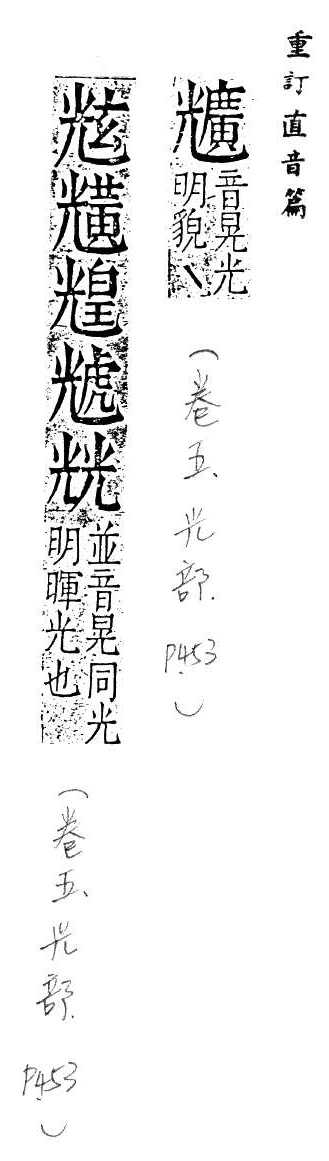 重訂直音篇
音晃光
明貌丶
(卷五、光部. P453)
並音晃同光
明暉光也
(卷五、光部. P453)